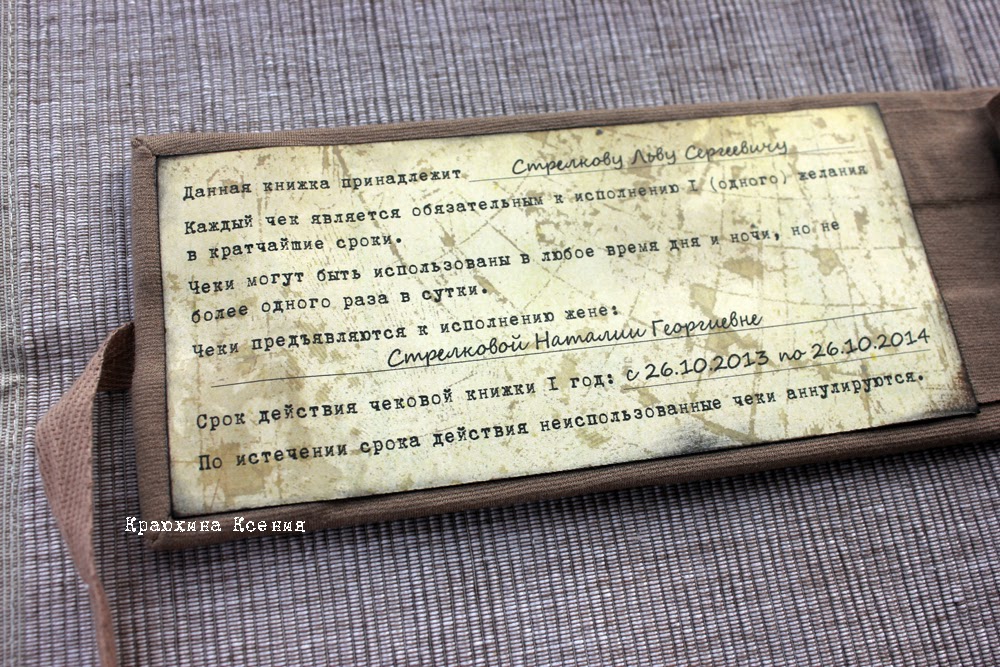 Данная книжка принадлежит Стрелкову Льву Сергеевичу
Каждый чек является обязательным к исполнению I (одного) желания
в кратчайшие сроки.
Чеки могут быть использованы в любое время дня и ночи, но не
более одного раза в сутки.
Чеки предъявляются к исполнению жене:
Стрелковой Наталии Георгиевне
Срок действия чековой книжки I год: с 26.10.2013 по 26.10.2014
По истечении срока действия неиспользованные чеки аннулируются.
Краюхина Ксения